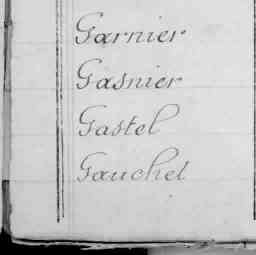 Garnier
Gasnier
Gastel
Gauchet